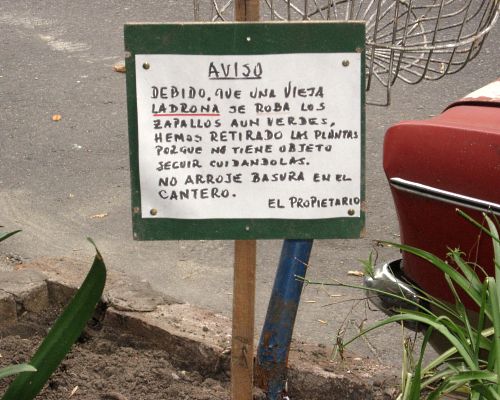 AVISO
DEBIDO, QUE UNA VIEJA
LADRONA SE ROBA LOS
ZAPALLOS AUN VERDES,
HEMOS RETIRADO LAS PLANTAS
PORQUE NO TIENE OBJETO
SEGUIR CUIDANDOLAS.
NO ARROJE BASURA EN EL
CANTERO.
EL PROPIETARIO